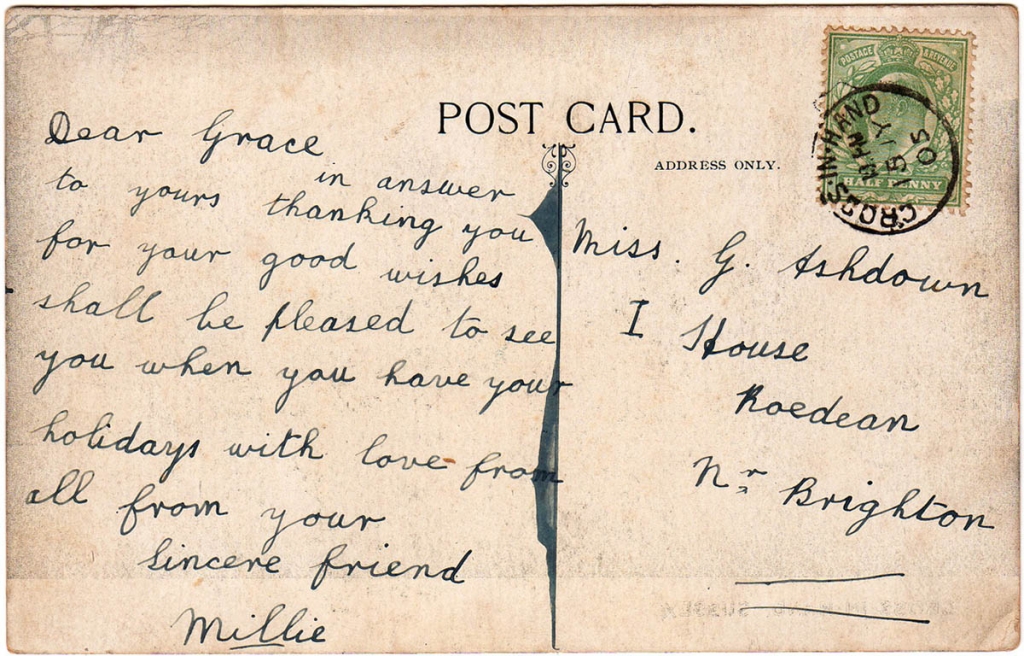 POSTAGE & REVENUE
HALF PENNY
CROSS-IN-HAND
MY 15
05
POST CARD.
ADDRESS ONLY.
Dear Grace
in answer
to yours thanking you
for your good wishes
shall be pleased to see
you when you have your
holidays with love from
all from your
Sincere friend
Millie
Miss. G. Ashdown
I House
Roedean
Nr Brighton